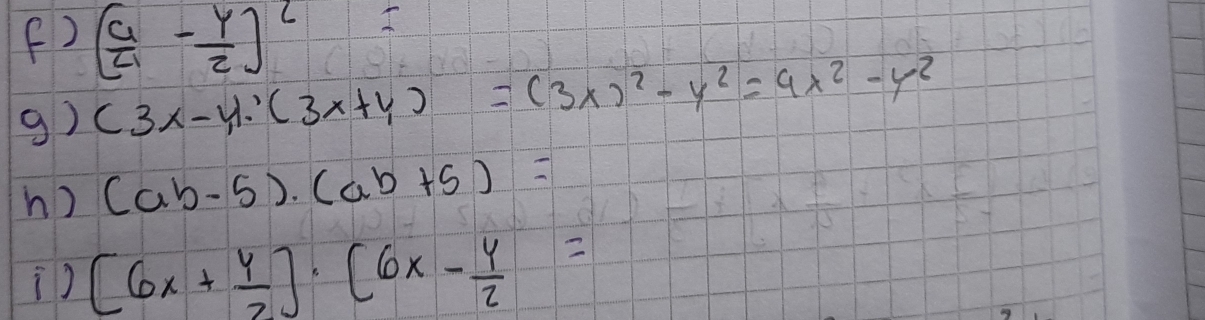 f) [a/2 - y/2]² =
g) (3x-y).(3x+y) = (3x)² - y² = 9x² - y²
h) (ab-5).(ab+5) =
i) [6x + y/2].[6x - y/2 =